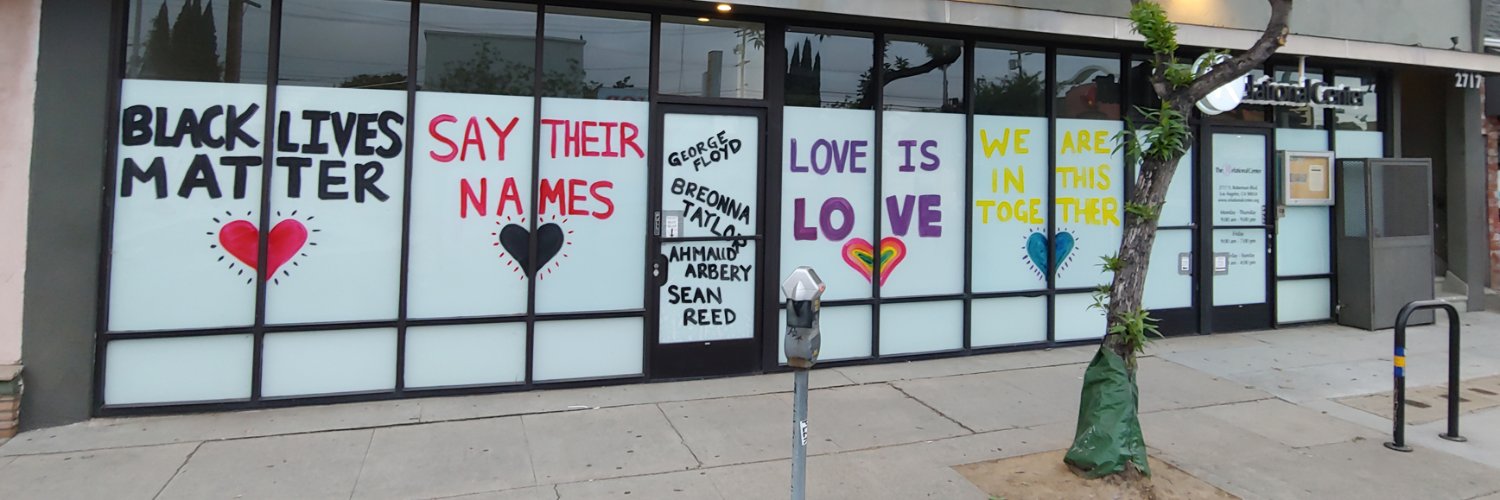 BLACK LIVES
MATTER
SAY THEIR
NAMES
GEORGE
FLOYD
BREONNA
TAYLOR
AHMAUD
ARBERY
SEAN
REED
LOVE IS
LOVE
WE ARE
IN THIS
TOGETHER
Relational Center
2717
The Relational Center
Los Angeles, CA 90034
Monday - Thursday
9:00 am - 9:00 pm
Friday
9:00 am - 7:00 pm